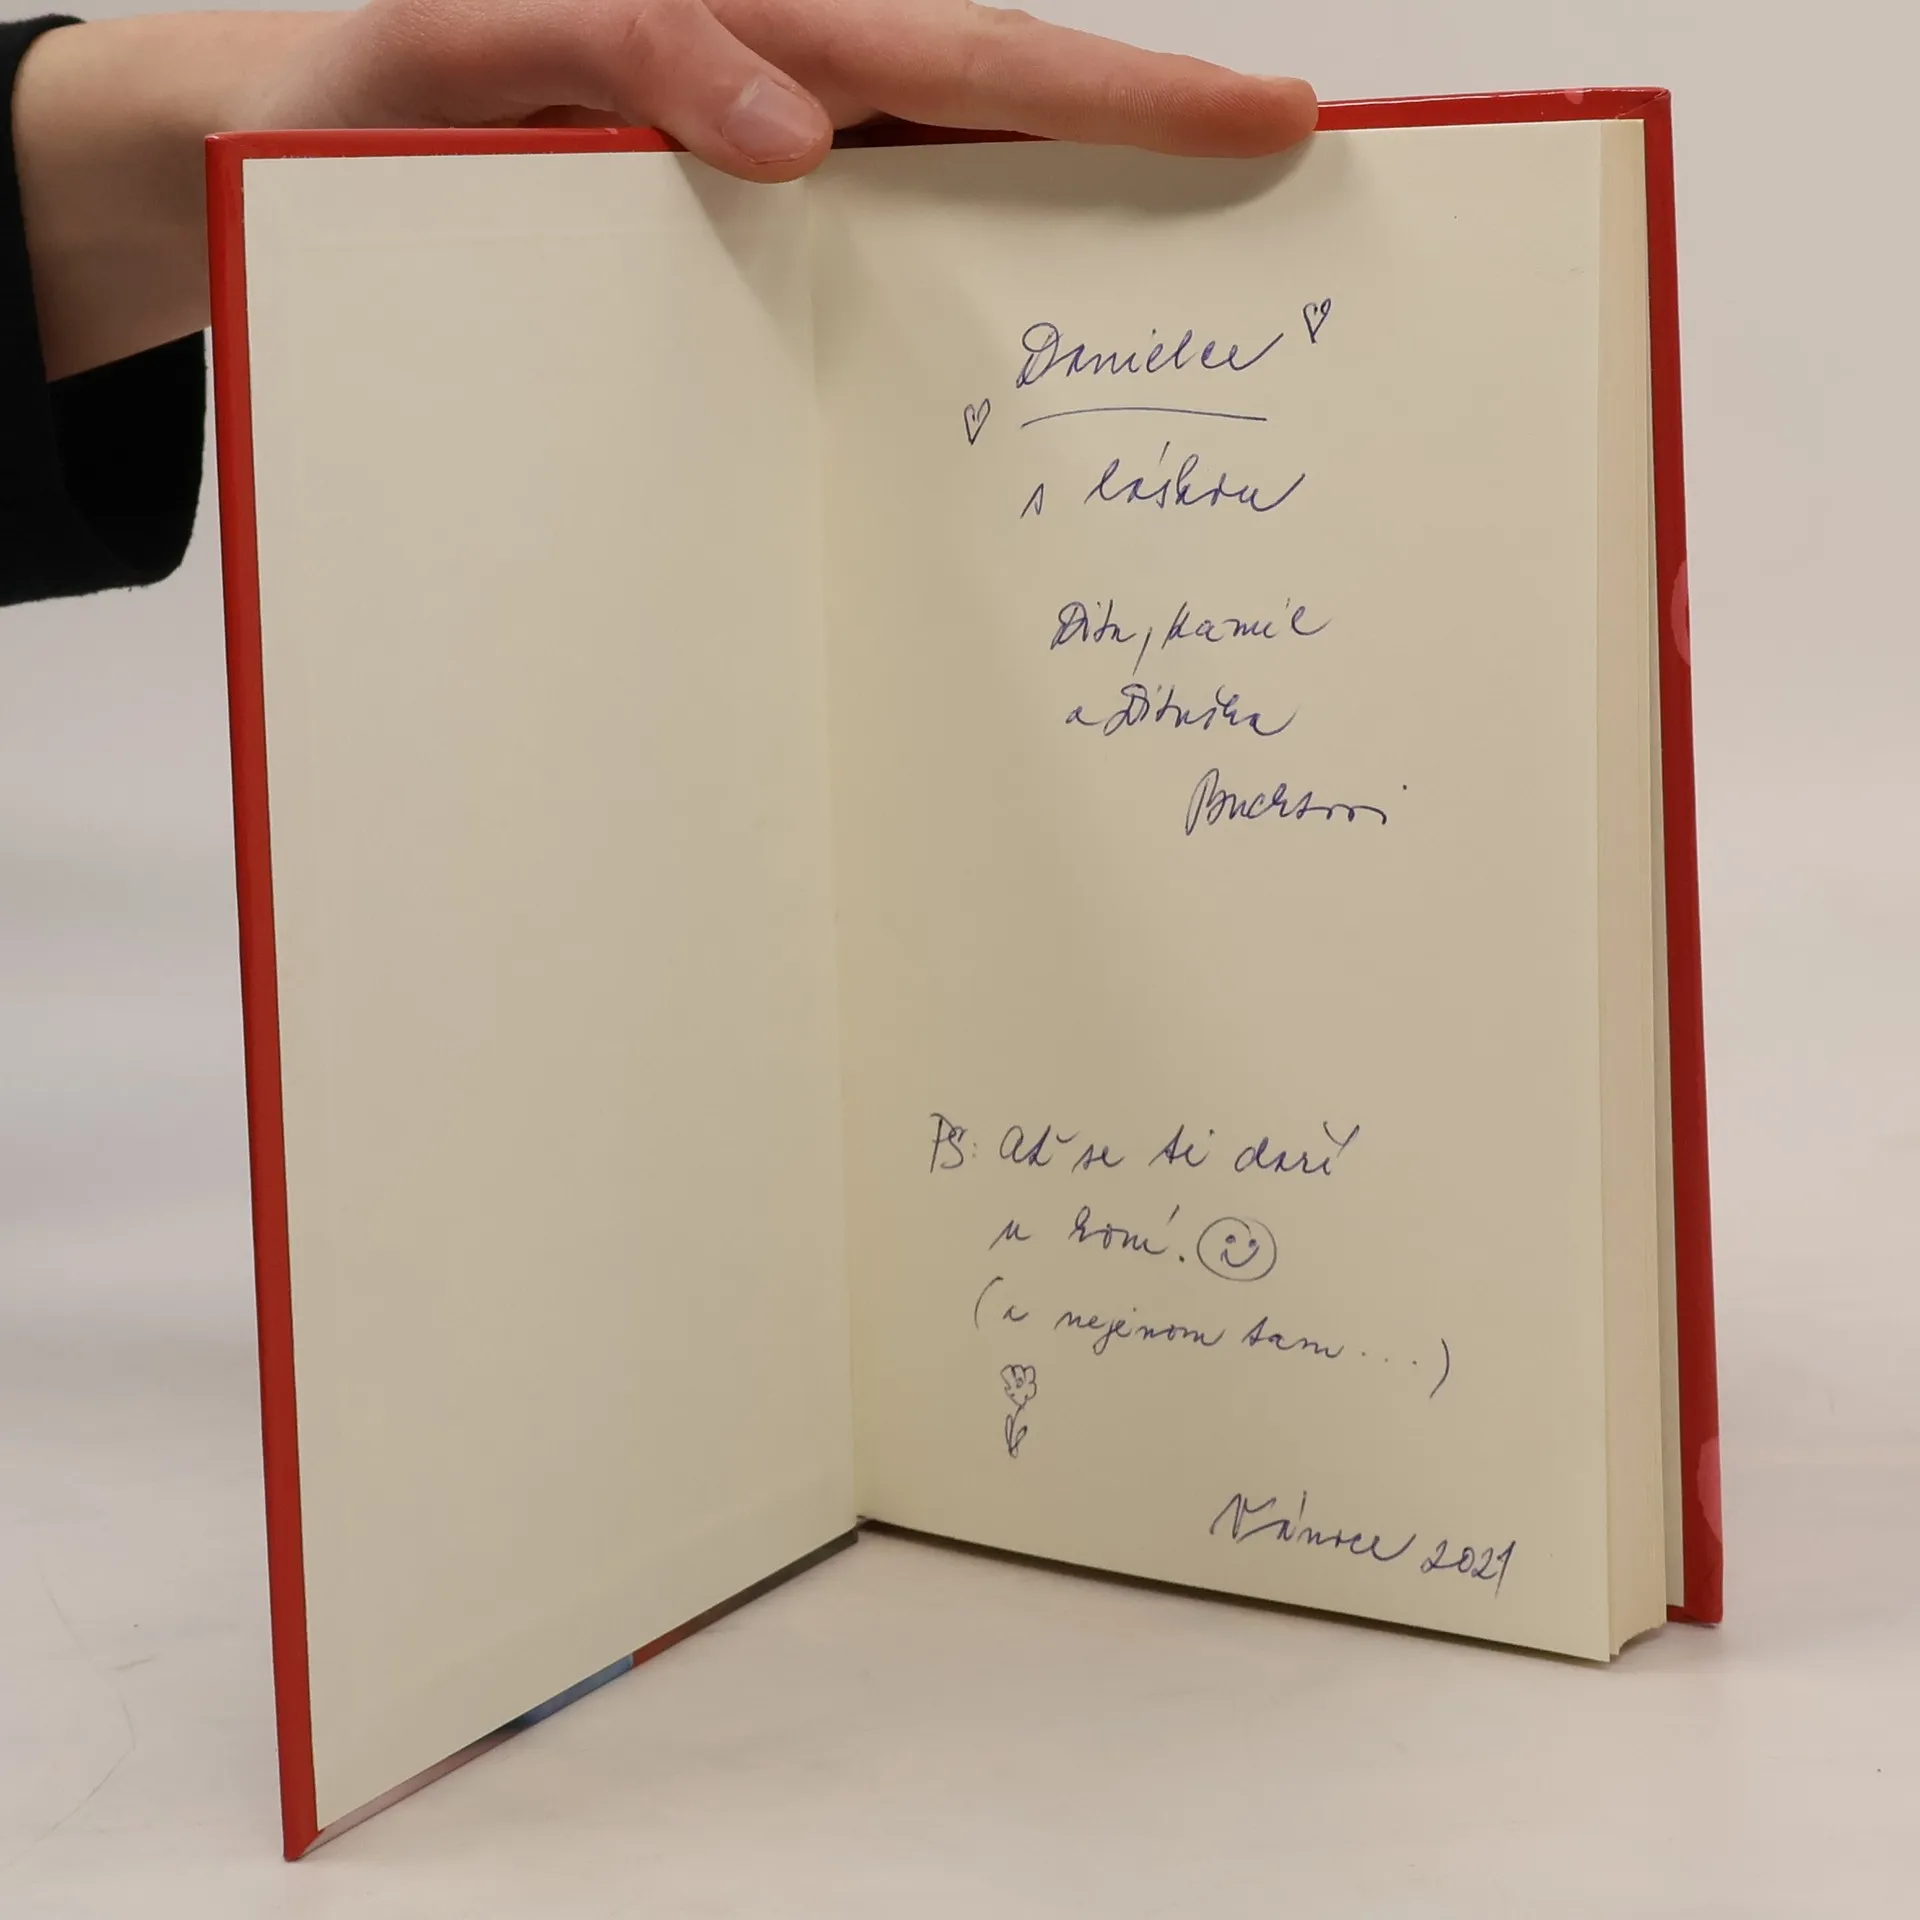 Danielce
s láskou
Dita, Kamil
a Dituška
PS: Ať se ti daří
u koní.
(a nejenom tam...)
Vánoce 2021